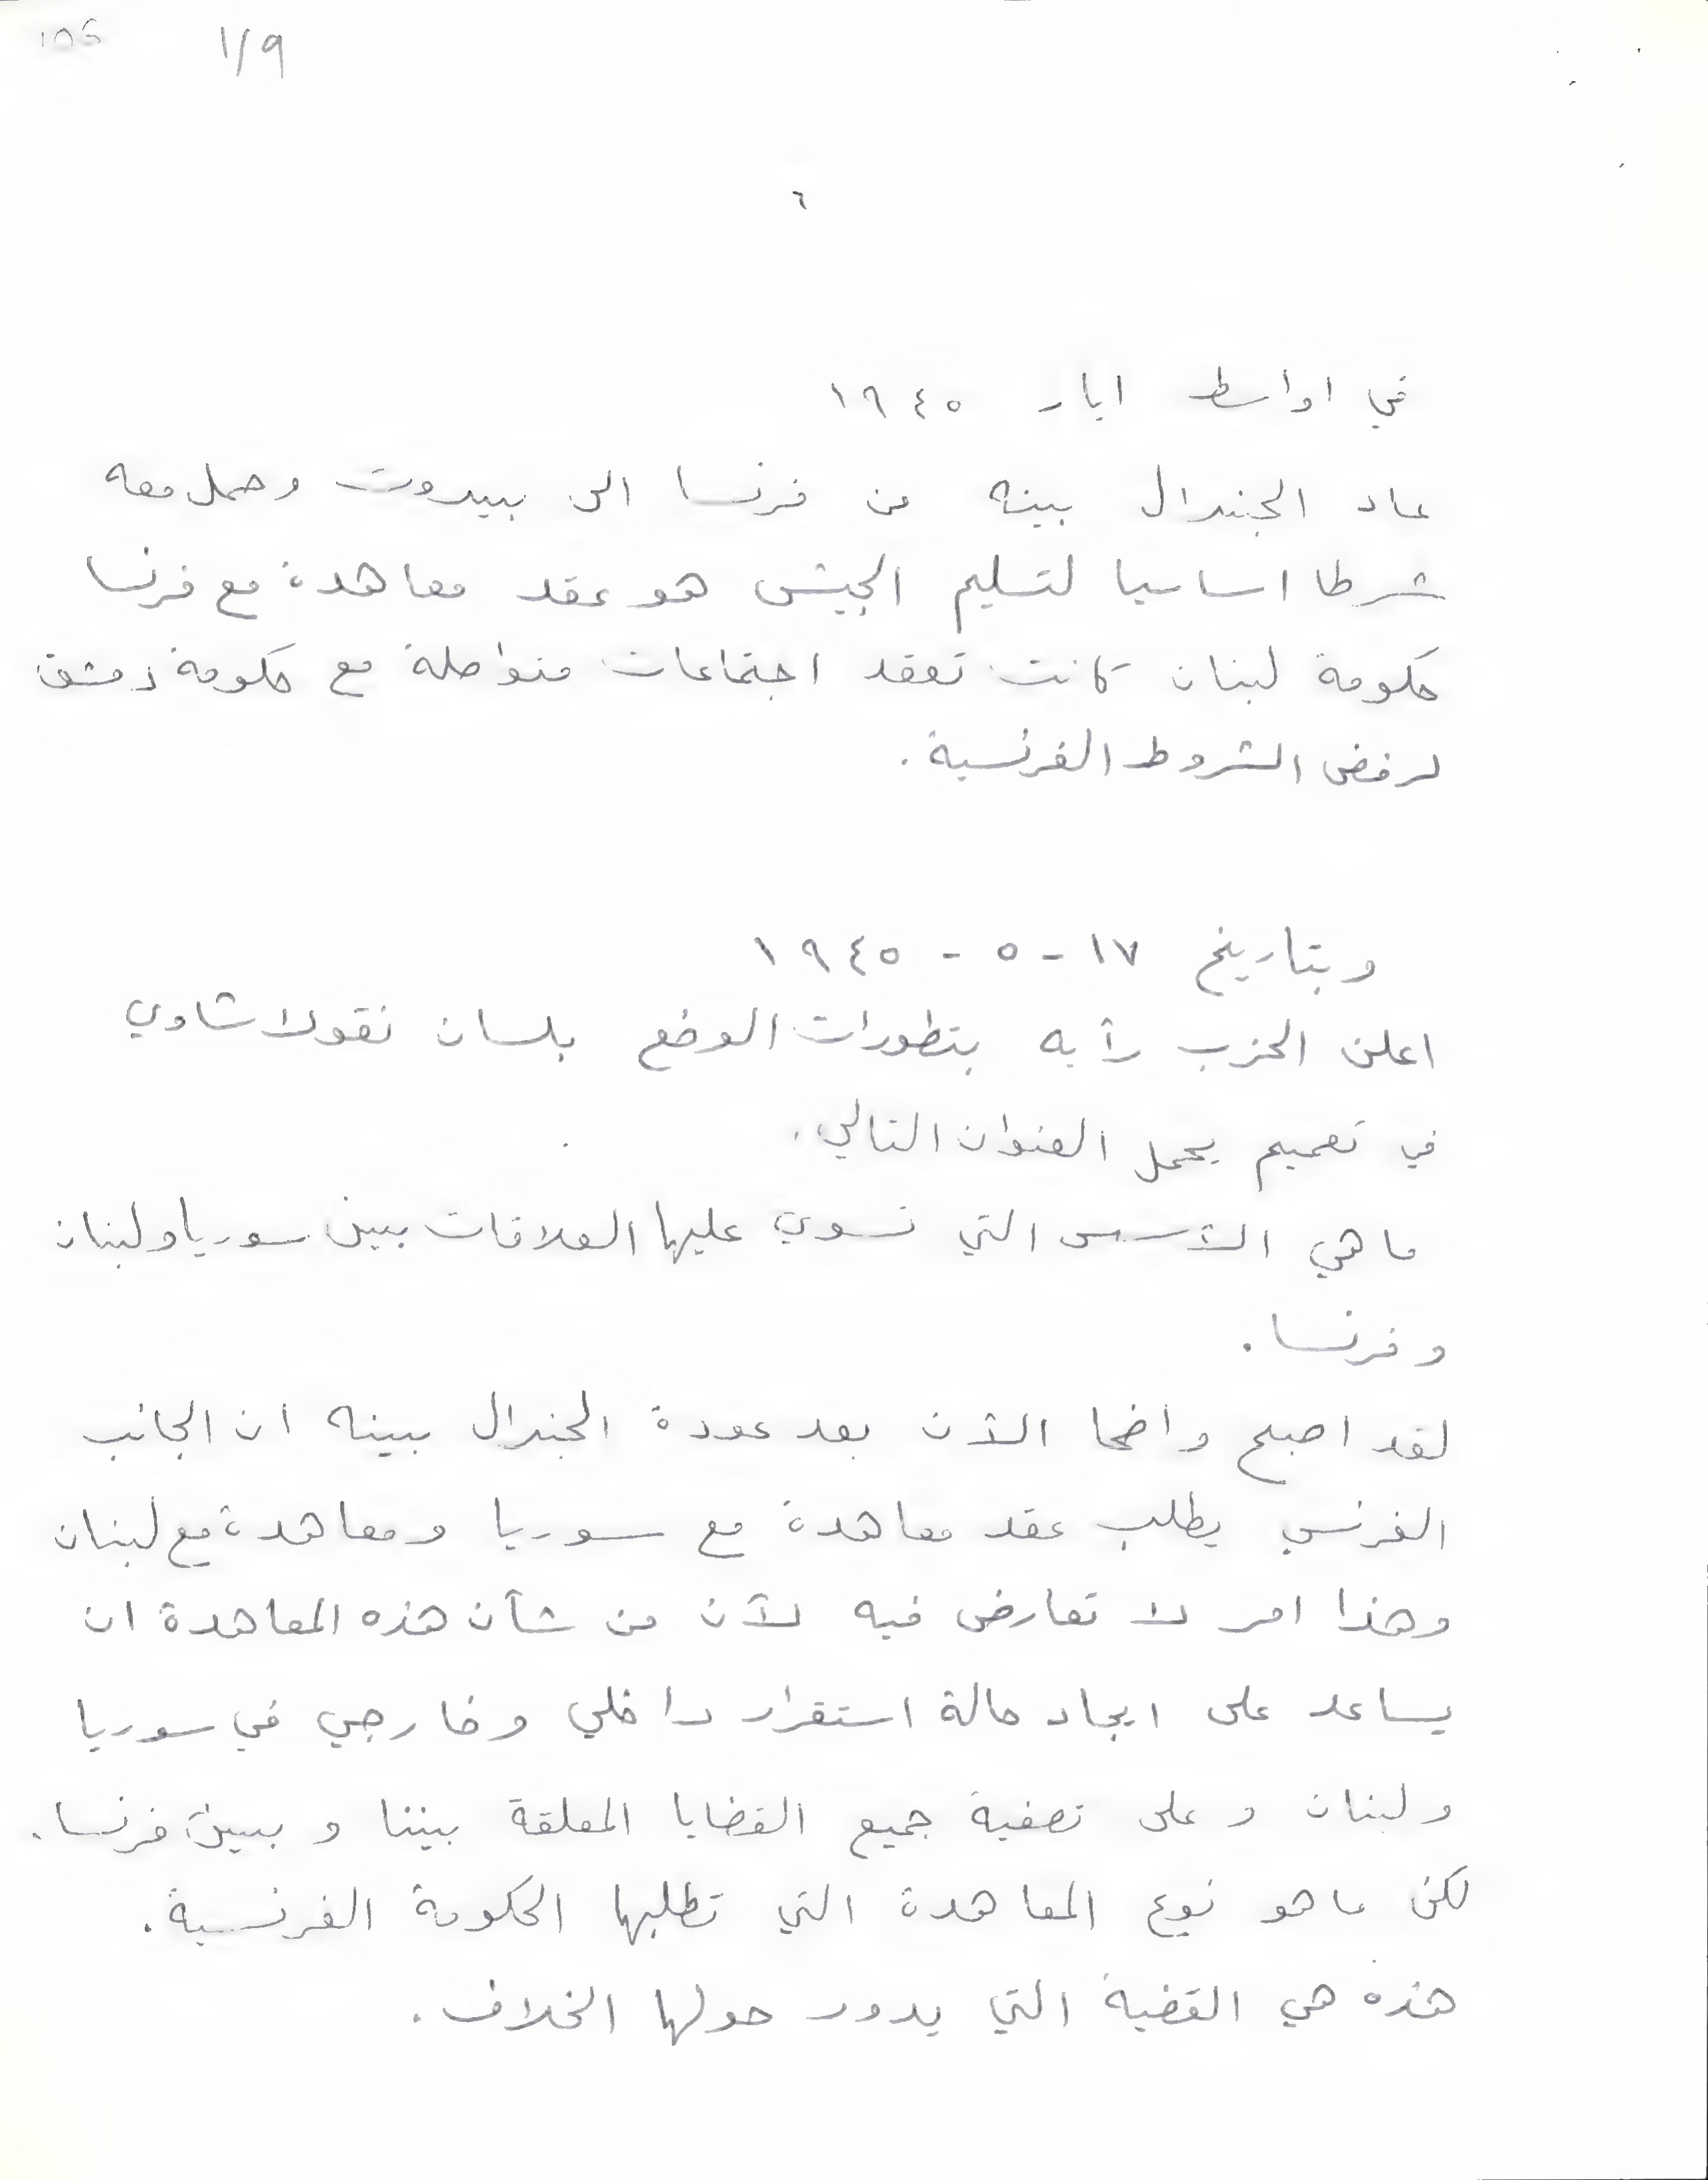 ١/٩
٦
في اواسط ايار ١٩٤٥
عاد الجنرال بينه من فرنسا الى بيروت وحمل معه
شرطا اساسيا لتسليم الجيش هو عقد معاهدة مع فرنسا
حكومة لبنان كانت تعقد اجتماعات متواصلة مع حكومة دمشق
لرفض الشروط الفرنسية .
وبتاريخ ١٧ - ٥ - ١٩٤٥
اعلن الحزب رأيه بتطورات الوضع بلسان نقولا شاوي
في تعميم يحمل العنوان التالي .
ما هي الأسس التي تسوي عليها العلاقات بين سوريا ولبنان
وفرنسا .
لقد اصبح واضحا الآن بعد عودة الجنرال بينه ان الجانب
الفرنسي يطلب عقد معاهدة مع سوريا ومعاهدة مع لبنان
وهذا امر لا تعارض فيه لأن من شأن هذه المعاهدة ان
يساعد على ايجاد حالة استقرار داخلي وخارجي في سوريا
ولبنان وعلى تصفية جميع القضايا المعلقة بيننا وبين فرنسا .
لكن ما هو نوع المعاهدة التي تطلبها الحكومة الفرنسية .
هذه هي القضية التي يدور حولها الخلاف .